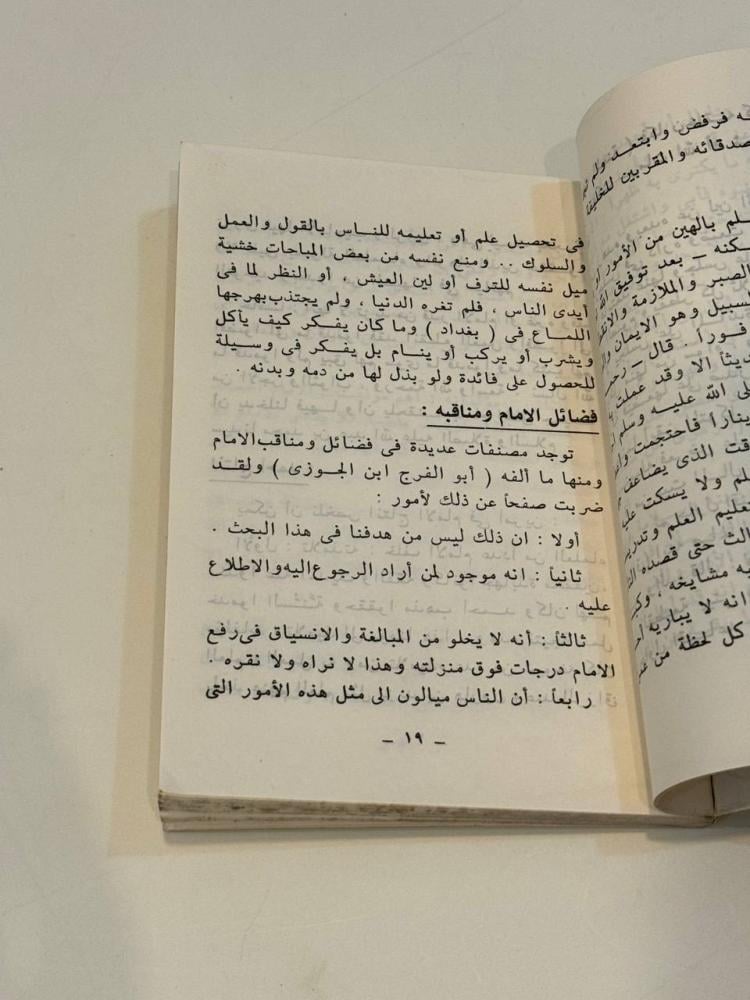 فى تحصيل علم أو تعليمه للنــاس بالقول والعمل
والسلوك .. ومنع نفسه من بعض المباحات خشية
ميل نفسه للترف أو لين العيش ، أو النظر لما فى
أيدى الناس ، فلم تغره الدنيا ، ولم يجتذب بهرجها
اللمـاع فى ( بغداد ) وما كان يفـكر كيف يأكل
ويشرب أو يركب أو ينـام بل يفـكر فى وسـيلة
للحصول على فائدة ولو بذل لها من دمه وبدنه .
فضائل الامام ومناقبه :
توجد مصنفات عديدة فى فضائل ومناقب الامام
ومنها ما ألفه ( أبو الفرج ابن الجـوزى ) ولقـد
ضربت صفحاً عن ذلك لأمور :
أولا : ان ذلك ليس من هدفنا فى هذا البحث .
ثانياً : انه موجود لمن أراد الرجوع اليه والاطلاع
عليه .
ثالثاً : أنه لا يخلو من المبالغة والانسياق فى رفع
الامام درجات فوق منزلته وهذا لا نراه ولا نقره .
رابعاً : أن الناس ميالون الى مثل هذه الأمور التى
– ١٩ –
ـه فرفض وابتعـد ولم
صدقائه والمقربين للخليفة
ـلم بالهين من الأمور أو
ـكنه – بعد توفيق الله
الصبر والملازمة
لسبيل وهو الايمان
فـوراً . قال – رحمـ
ـديثاً الا وقد عملت
ـلى الله عليـه وسلم
ـيناراً فاحتجمت
ـقت الذى يضاعف
ـلم ولا يسكت
ـعليم العلم
ـالث حتى قصده
ـيه مشايخه ،
انه لا يباريه
كل لحظة من